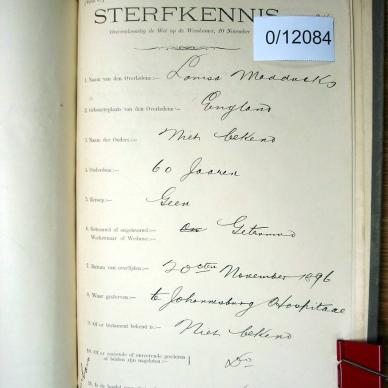 STERFKENNIS
0/12084
Overeenkomstig de Wet op de Weeskamer, 20 November
1. Naam van den Overledene:— Louisa Maddocks
2. Geboorteplaats van den Overledene:— England
3. Naam der Ouders:— Niet bekend
4. Ouderdom:— 60 Jaaren
5. Beroep:— Geen
6. Getrouwd of ongetrouwd Getrouwd
Weduwnaar of Weduwe:—
7. Datum van overlijden:— 20sten November 1896
8. Waar gestorven:— te Johannesburg Hospitaal
9. Of er testament bekend is:— Niet bekend
10. Of er roerende of onroerende goederen Do
of beiden zijn nagelaten:—